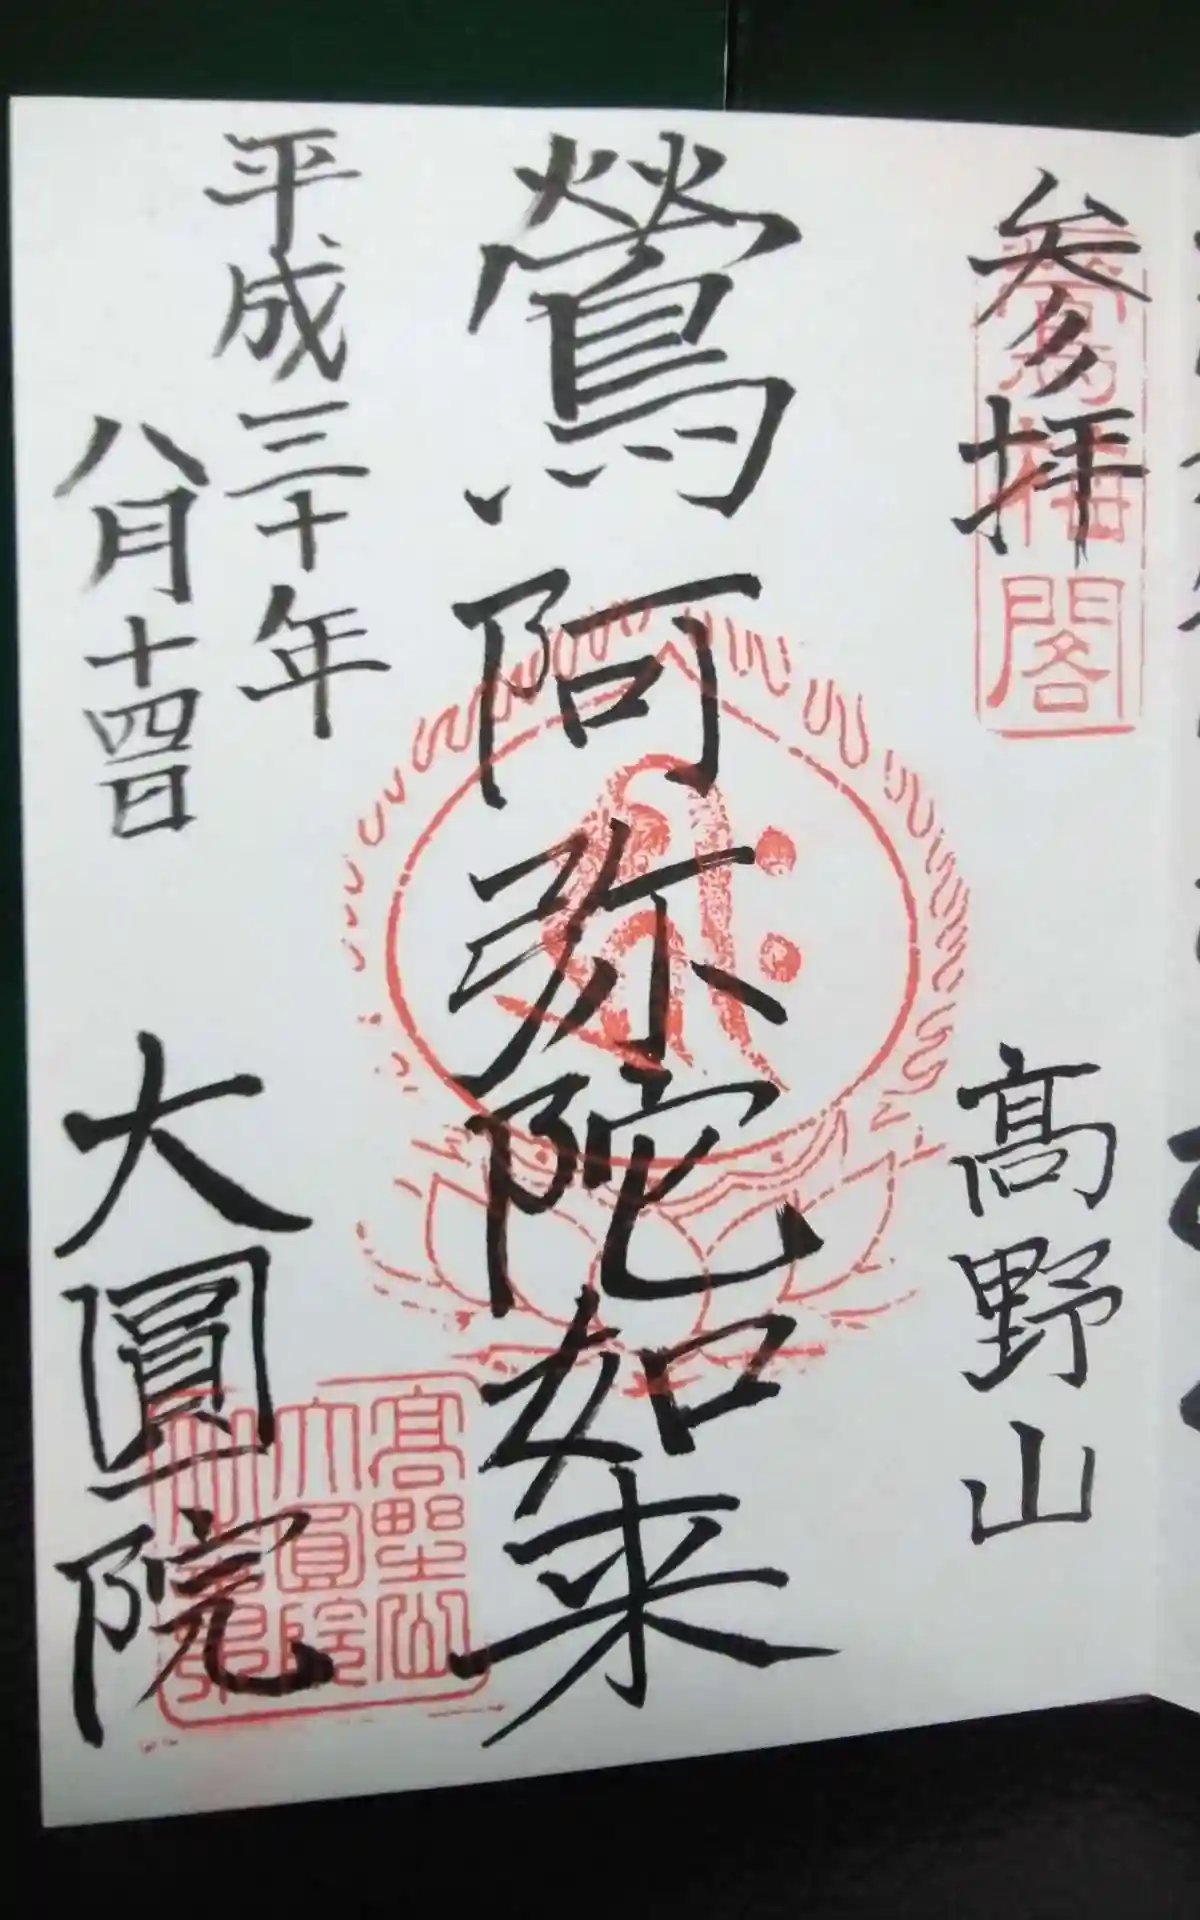 参拝
高野山
鶯阿弥陀如来
平成三十年
八月十四日
大圓院
鶯梅閣
高野山
大圓院